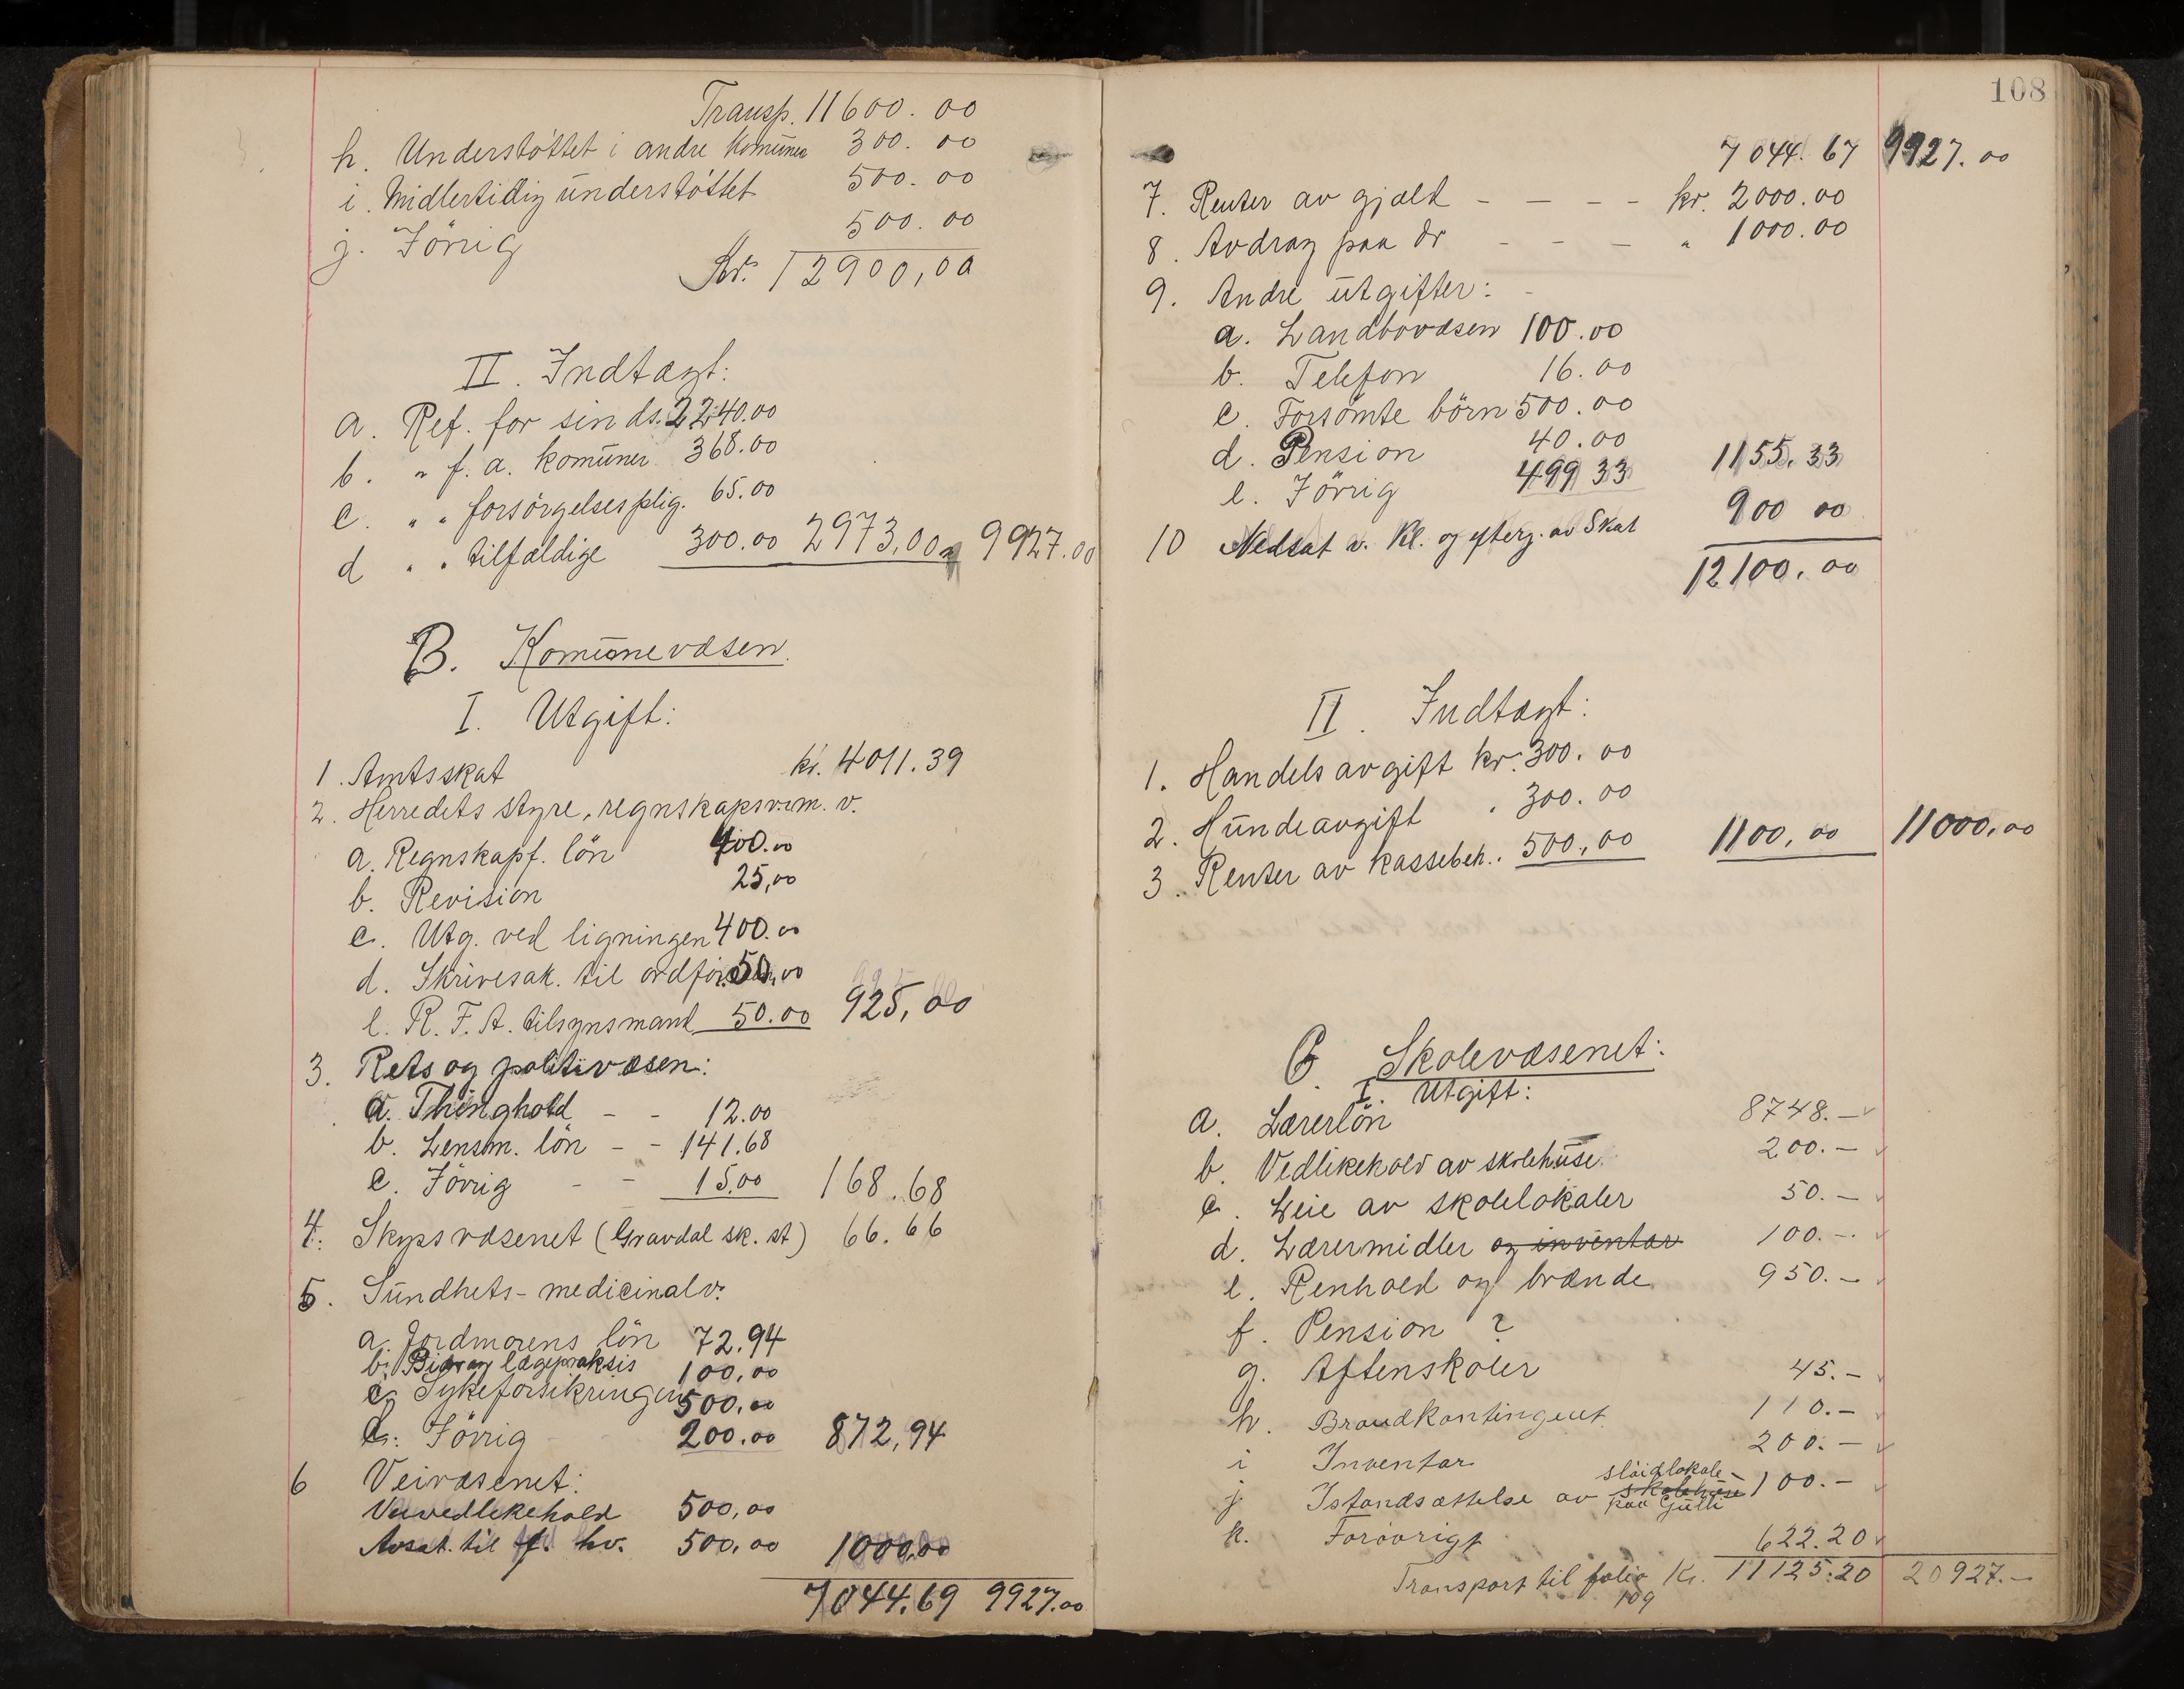 Transp. 11600.00
h. Understöttet i andre Komuner 300.00
i. Midlertidig understöttet 500.00
j. Iövrig 500.00
Kr. 12900,00
II. Indtægt:
a. Ref. for sin ds. 2240.00
b. " f. a. komuner 368.00
c. " " forsörgelsesplig. 65.00
d " " tilfældige 300.00 2973,00 9927.00
B. Komunevæsen.
I. Utgift:
1. Amtsskat kr. 4011.39
2. Herredets styre, regnskapsv. m. v.
a. Regnskapsf. lön 400.00
b. Revision 25,00
c. Utg. ved ligningen 400.00
d. Skrivesak. til ordför. 50,00
e. R. F. A. tilsynsmand 50.00 925,00
3. Rets og politivæsen:
a. Thinghold - - 12.00
b. Lensm. lön - - 141.68
c. Iövrig - - 15,00 168.68
4. Skyssvæsenet (Gravdal sk. st) 66.66
5. Sundhets- medicinalv:
a. Jordmorens lön 72.94
b. Bidrag lægepraksis 100,00
c. Sykeforsikringen 500,00
d. Iövrig 200.00 872,94
6 Veivæsenet:
Veivedlekehold 500,00
Avsat. til f. hv. 500,00 1000,00
7044.69 9927.00
108
7044.67 9927.00
7. Renter av gjæld - - - - kr. 2000.00
8. Avdrag paa Do - - - " 1000.00
9. Andre utgifter: -
a. Landbovæsen 100.00
b. Telefon 16.00
c. Forsömte börn 500.00
d. Pension 40.00
e. Iövrig 499 33 1155.33
10 Nedsat v. Kl. og efterg. av Skat 900 00
12100.00
II. Indtægt:
1. Handelsavgift kr. 300.00
2. Hundeavgift " 300.00
3. Renter av kassebeh. " 500,00 1100,00 11000,00
C. Skolevæsenet:
I. Utgift:
a. Lærerlön 8748.-
b. Vedlikehold av skolehuse. 200.-
c. Leie av skolelokaler 50.-
d. Lærermidler og inventar 100.-
e. Renhold og brænde 950.-
f. Pension ?
g. Aftenskoler 45.-
h. Brandkontingent 110.-
i Inventar 200.-
slöidlokale
j Istandsættelse av skolehuse 100.-
paa Gulli
k. Forövrigt 622.20
Transport til folio Kr. 11125.20 20927.-
109